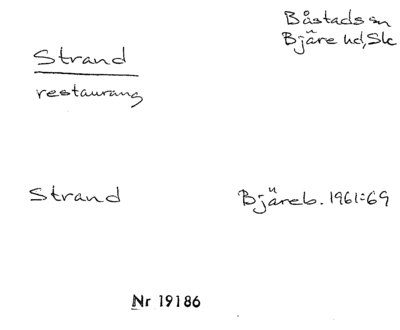 Båstads sn
Bjäre hd, Sk
Strand
restaurang
Strand
Bjäreb. 1961:69
Nr 19186